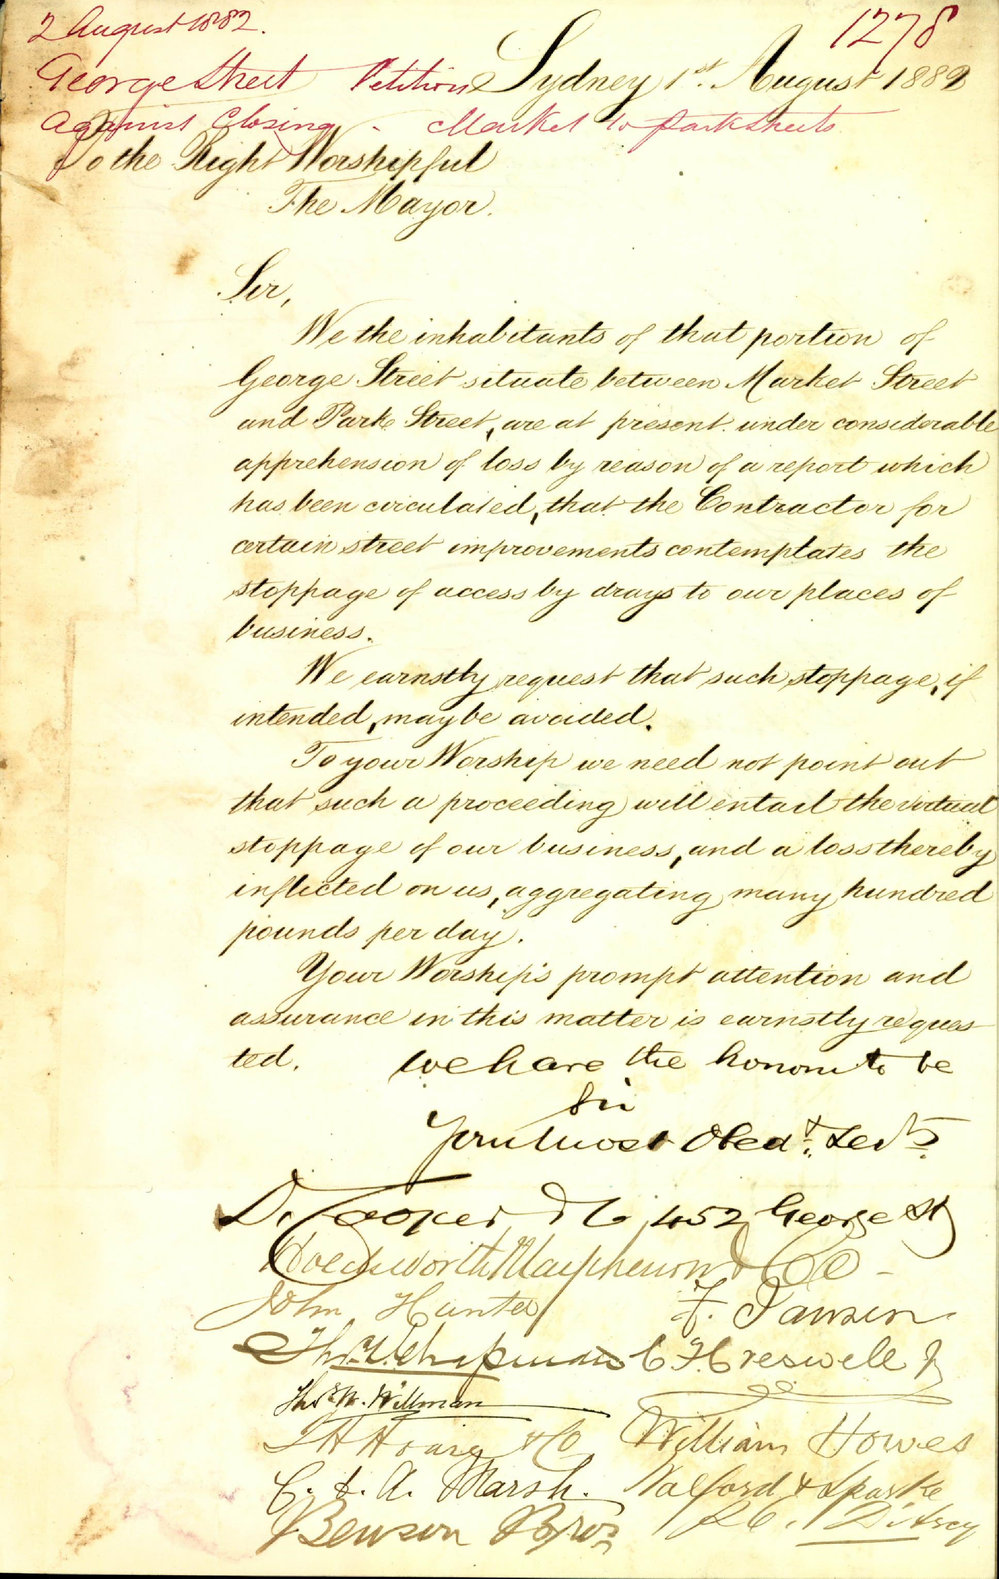 2 August 1882.
1278
George Street Petition
Sydney 1st. August 1882
against Closing - Market to Park Streets
To the Right Worshipful
The Mayor.
Sir,
We the inhabitants of that portion of
George Street situate between Market Street
and Park Street, are at present under considerable
apprehension of loss by reason of a report which
has been circulated, that the Contractor for
certain street improvements contemplates the
stoppage of access by drays to our places of
business.
We earnstly request that such stoppage, if
intended, may be avoided.
To your Worship we need not point out
that such a proceeding will entail the virtual
stoppage of our business, and a loss thereby
inflicted on us, aggregating many hundred
pounds per day.
Your Worship's prompt attention and
assurance in this matter is earnstly reques
ted. we have the honour to be
Sir
Your Most Obedt. Servts.
D. Cooper & Co, 452 George St
& Co
John Hunter
F.
Thos. Chapman
C H Creswell Jr
Thos W. Willman
William Howes
& Co
C. & A. Marsh.
Walford & Sparke
J Benson Bros